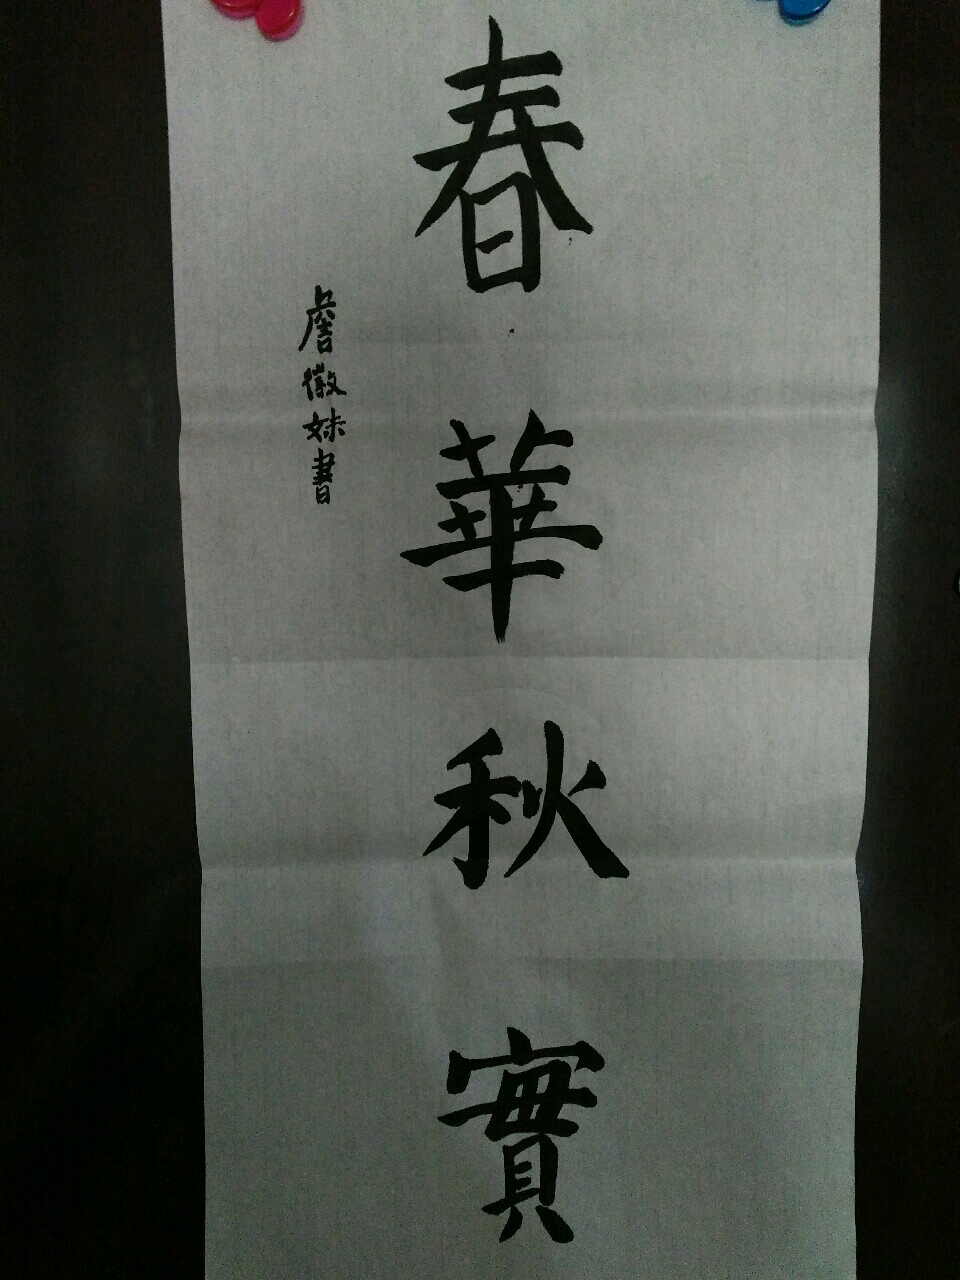 春華秋實
詹微妹書